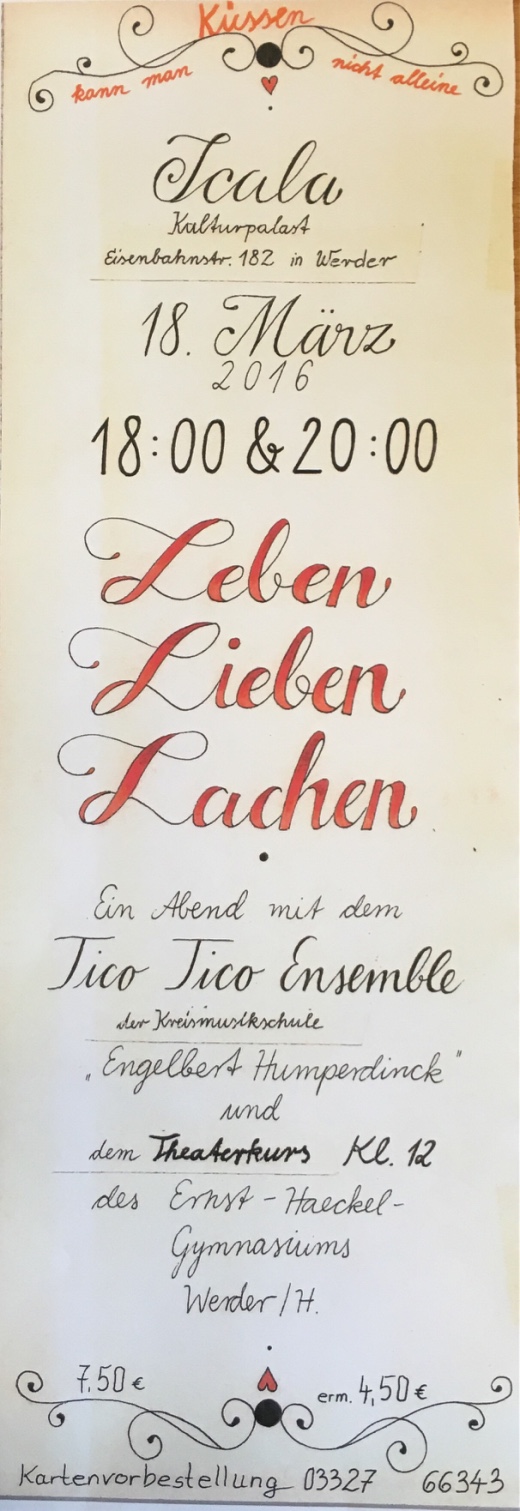 Küssen
kann man nicht alleine
Scala
Kulturpalast
Eisenbahnstr. 182 in Werder
18. März
2016
18:00 & 20:00
Leben
Lieben
Lachen
Ein Abend mit dem
Tico Tico Ensemble
der Kreismusikschule
„Engelbert Humperdinck"
und
dem Theaterkurs Kl. 12
des Ernst-Haeckel-
Gymnasiums
Werder/H.
7,50 € erm. 4,50 €
Kartenvorbestellung 03327 66343